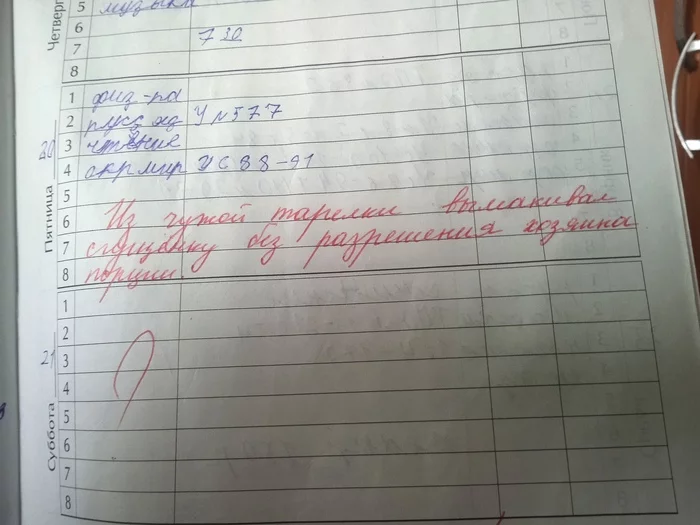 Четверг
5 музыка
6
7 730
8
Пятница
20
1 физ-ра
2 русс яз У №577
3 чтение
4 окр мир У С 88-91
5
6 Из чужой тарелки вымакивал
7 сгущёнку без разрешения хозяина
8 порции.
Суббота
21
1
2
3
4
5
6
7
8